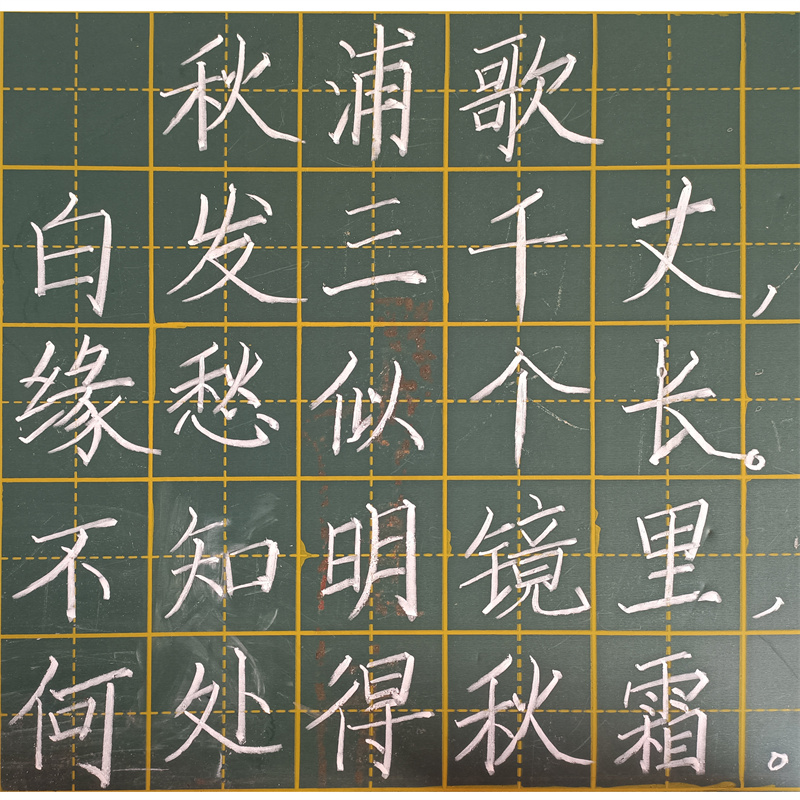 秋浦歌
白发三千丈，
缘愁似个长。
不知明镜里，
何处得秋霜。